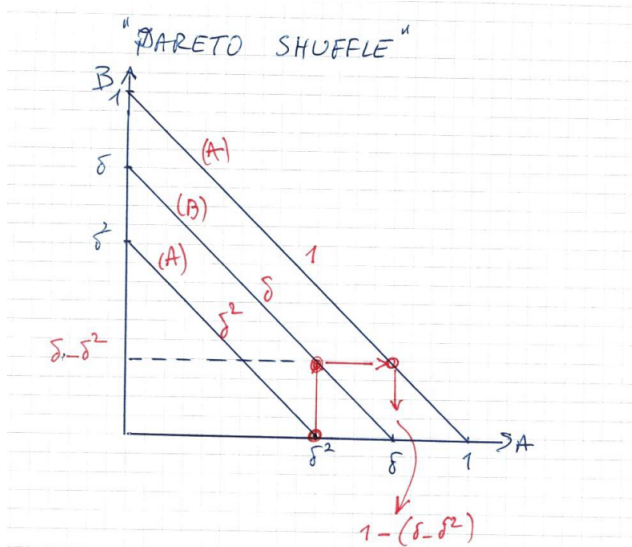 "PARETO SHUFFLE"
B
1
(A)
δ
(B)
δ²
(A)
1
δ
δ²
δ-δ²
δ² δ 1 A
1-(δ-δ²)